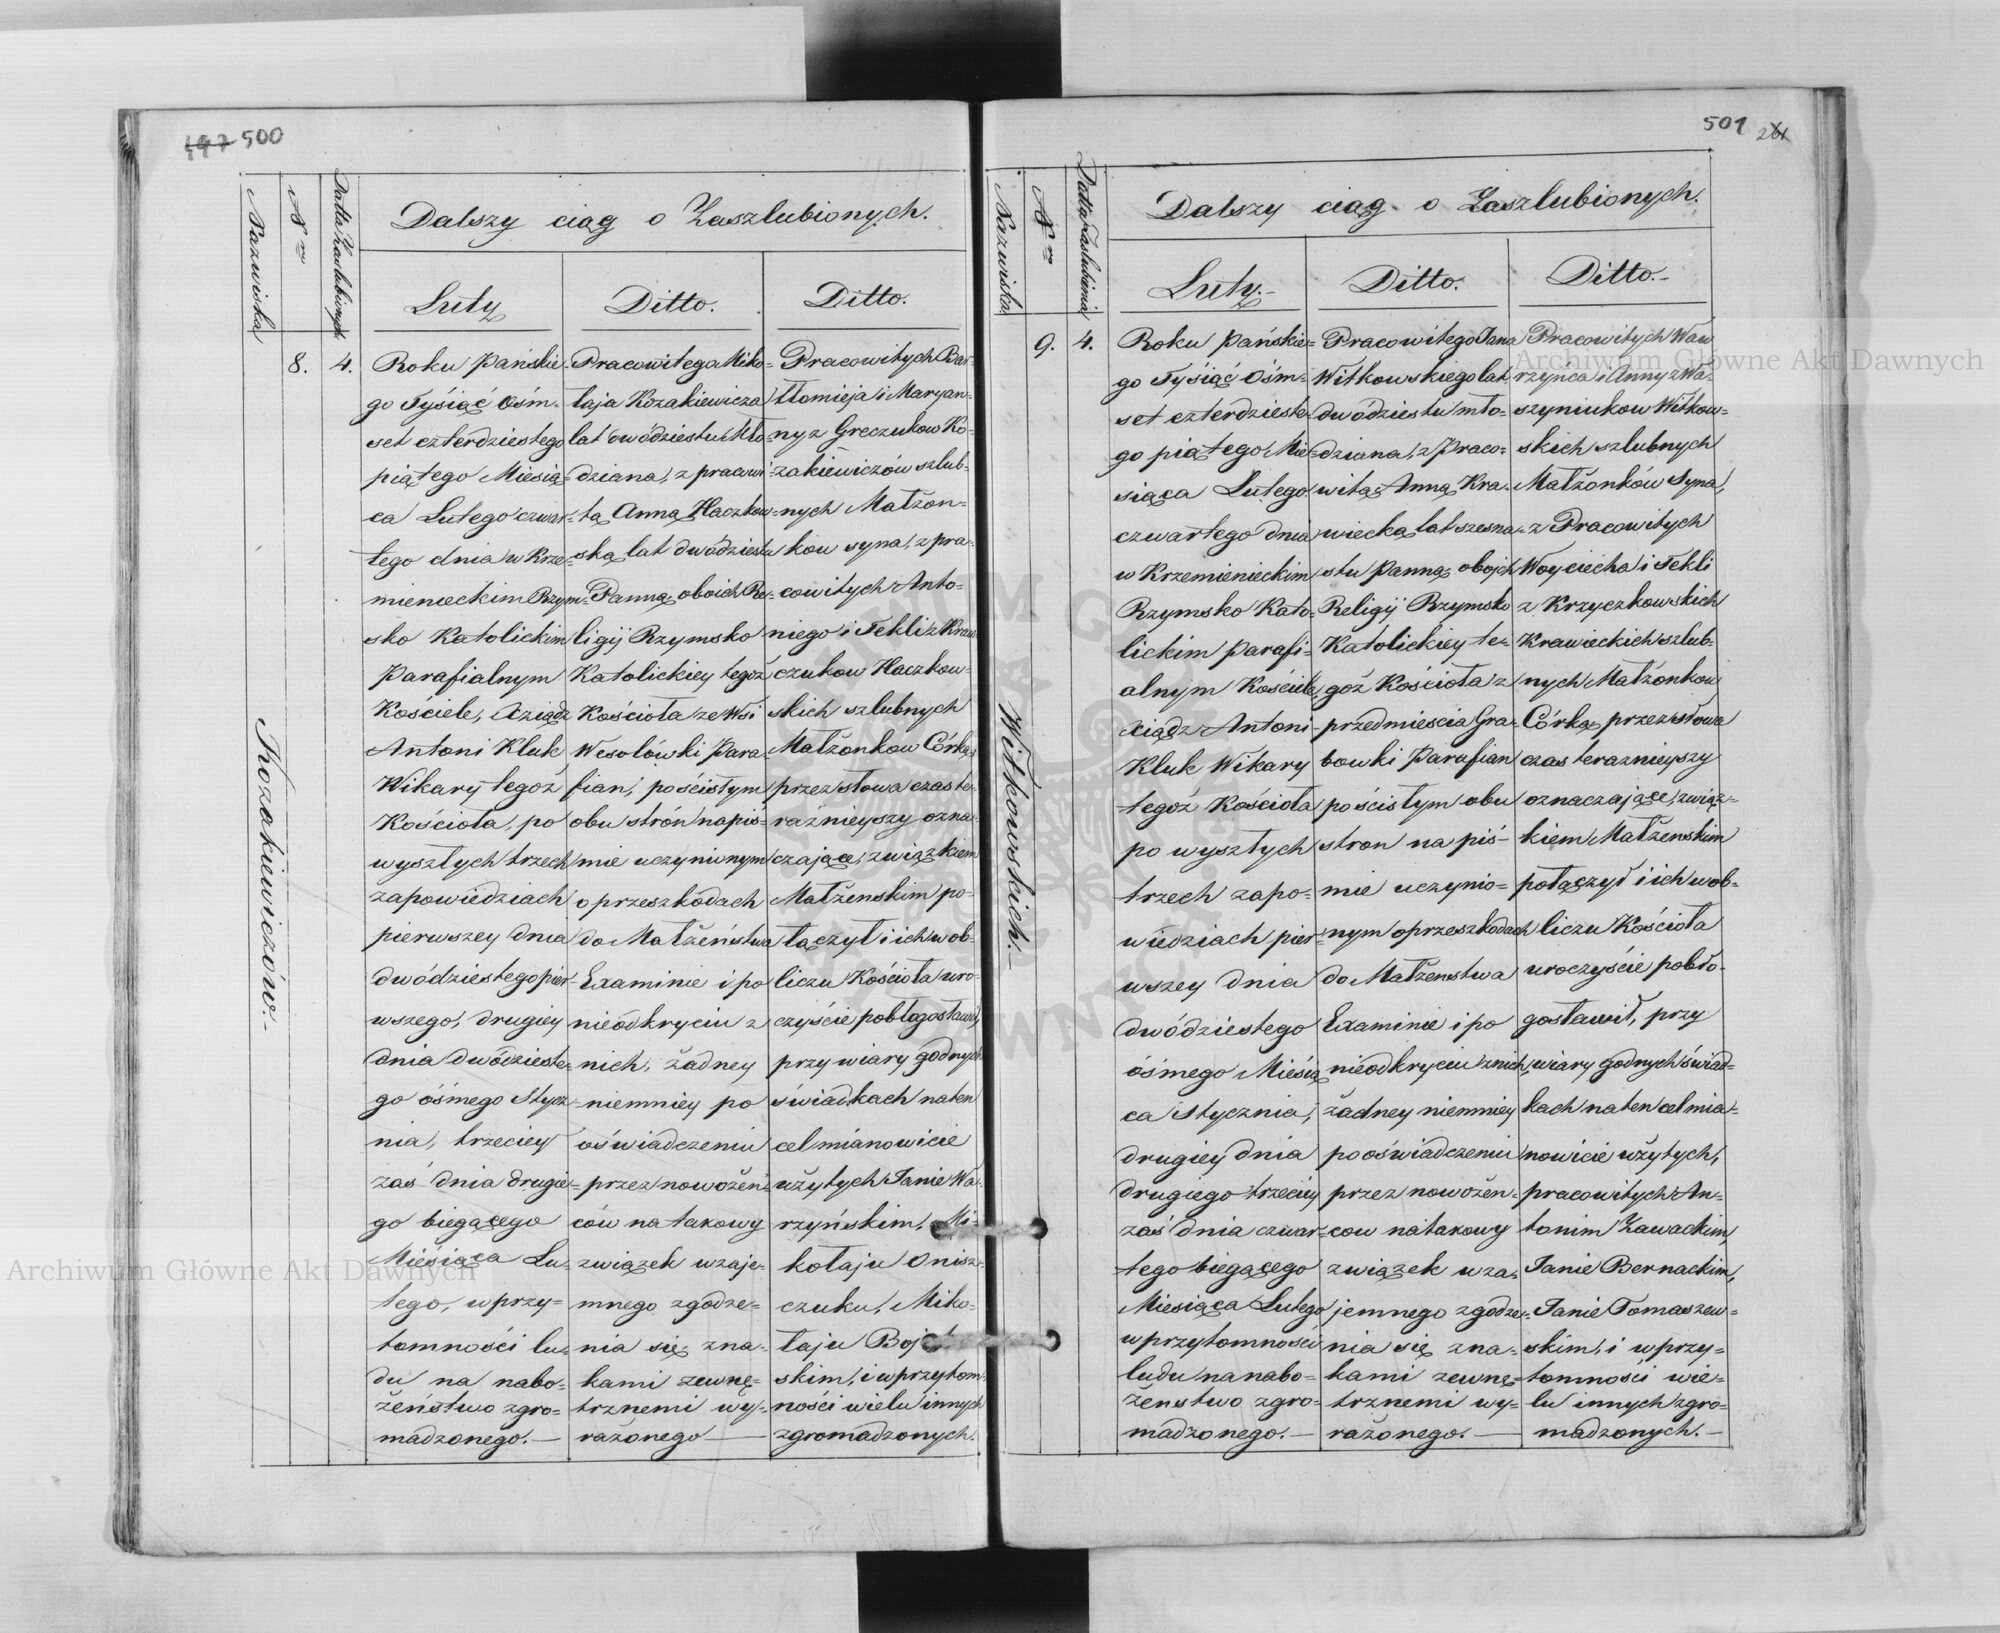 497 500
Dalszy ciąg o Zaszlubionych.
Nazwiska
Nro
Datta Zaszlubionych
Luty
Ditto.
Ditto.
Kozakiewiczów.-
8.
4.
Roku Pańskie-
go Tysiąć Ośm-
set czterdziestego
piątego Miesią-
ca Lutego czwar-
tego dnia w Krze-
mienieckim Rzym-
sko Katolickim
Parafialnym
Kościele, Xiądz
Antoni Kluk
Wikary tegoż
Kościoła, po
wyszłych trzech
zapowiedziach
pierwszey dnia
dwódziestego pier-
wszego, drugiey
dnia dwódzieste-
go ósmego Stycz-
nia, trzeciey
zaś dnia drugie-
go biegącego
Miesiąca Lu-
tego, w przy-
tomności lu-
du na nabo-
żeństwo zgro-
madzonego.—
Pracowitego Miko-
łaja Kozakiewicza
lat dwódziestu Mło-
dziana, z pracowi-
tą Anną Haczkow-
ską lat dwódziestu
Panną, oboich Re-
ligij Rzymsko
Katolickiey tegoż
Kościoła ze Wsi
Wesołówki Para-
fian, po ścisłym
obu strón na piś-
mie uczynionym
o przeszkodach
do Małżeństwa
Examinie i po
nieodkryciu z
nich, żadney
niemniey po
oświadczeniu
przez nowożeni-
ców na takowy
związek wzaje-
mnego zgodze-
nia się, zna-
kami zewnę-
trznemi wy-
rażonego —
Pracowitych Bar-
tłomieja i Maryan-
ny z Greczukow Ko-
zakiewiczów szlub-
nych Małżon-
kow syna, z pra-
cowitych Anto-
niego i Tekli z Kraw-
czukow Haczkow-
skich szlubnych
Małżonkow Córką,
przez słowa czas te-
raźnieyszy ozna-
czające, związkiem
Małżenskim po-
łączył i ich w ob-
liczu Kościoła uro-
czyście pobłogosławił,
przy wiary godnych
świadkach na ten
cel mianowicie
użytych Janie Wa-
rzyńskim, Mi-
kołaju Onisz-
czuku, Miko-
łaju Boj
skim, i w przytom-
ności wielu innych
zgromadzonych.
501 261
Dalszy ciąg o Zaszlubionych.
Nazwiska
Nro
Datta Zaslubienia
Luty.-
Ditto.
Ditto.-
Witkowskich.-
9.
4.
Roku Pańskie-
go Tysiąć Ośm-
set czterdzieste-
go piątego Mie-
siąca Lutego
czwartego dnia
w Krzemienieckim
Rzymsko Kato-
lickim Parafi-
alnym Kościele,
Xiądz Antoni
Kluk Wikary
tegoż Kościoła
po wyszłych
trzech zapo-
wiedziach pier-
wszey dnia
dwódziestego
ósmego Miesią-
ca Stycznia,
drugiey dnia
drugiego trzeciey
zaś dnia czwar-
tego biegącego
Miesiąca Lutego
w przytomności
ludu na nabo-
żenstwo zgro-
madzonego.—
Pracowitego Jana
Witkowskiego lat
dwódziestu mło-
dziana, z Praco-
witą Anną Kra-
wiecką lat szesna-
stu Panną, oboich
Religij Rzymsko
Katolickiey te-
goż Kościoła z
przedmiescia Gra-
bowki Parafian
po ścisłym obu
stron na piś-
mie uczynio-
nym o przeszkodach
do Małżenstwa
Examinie i po
nieodkryciu z nich,
żadney niemniey
po oświadczeniu
przez nowożen-
cow na takowy
związek wza-
jemnego zgodze-
nia się zna-
kami zewnę-
trznemi wy-
rażonego.—
Pracowitych Waw-
rzyńca i Anny z Wa-
szyniukow Witkow-
skich szlubnych
Małżonków Syna,
z Pracowitych
Woyciecha i Tekli
z Krzyczkowskich
Krawieckich szlub-
nych Małżonkow
Córką, przez słowa
czas teraznieyszy
oznaczające, związ-
kiem Małżenskim
połączył i ich w ob-
liczu Kościoła
uroczyście pobło-
gosławił, przy
wiary godnych świad-
kach na ten cel mia-
nowicie użytych,
pracowitych An-
tonim Zawackim,
Janie Bernackim,
Janie Tomaszew-
skim, i w przy-
tomności wie-
lu innych zgro-
madzonych.—
Archiwum Główne Akt Dawnych
Archiwum Główne Akt Dawnych